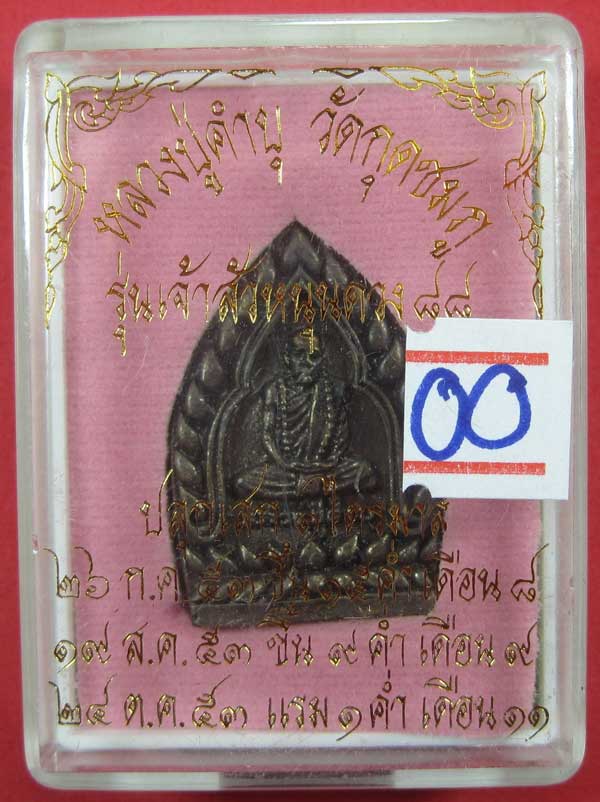 หลวงปู่คำบุ วัดกุดชมภู
รุ่นเจ้าสัวหนุนดวง ๘๘
00
ปลุกเสก ๓ ไตรมาส
๒๖ ก.ค. ๕๓ ขึ้น ๑๕ ค่ำ เดือน ๘
๑๙ ส.ค. ๕๓ ขึ้น ๙ ค่ำ เดือน ๙
๒๔ ต.ค. ๕๓ แรม ๑ ค่ำ เดือน ๑๑